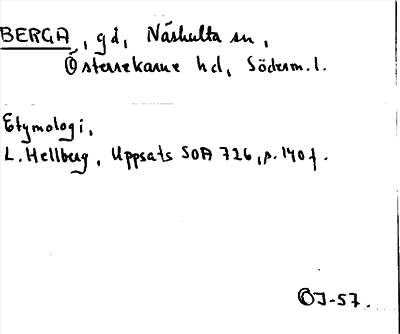 BERGA, gd, Näshulta sn,
Österrekarne hd, Söderm. l.
Etymologi,
L. Hellberg, Uppsats SOA 726, p. 140 f.
ÖJ-57.